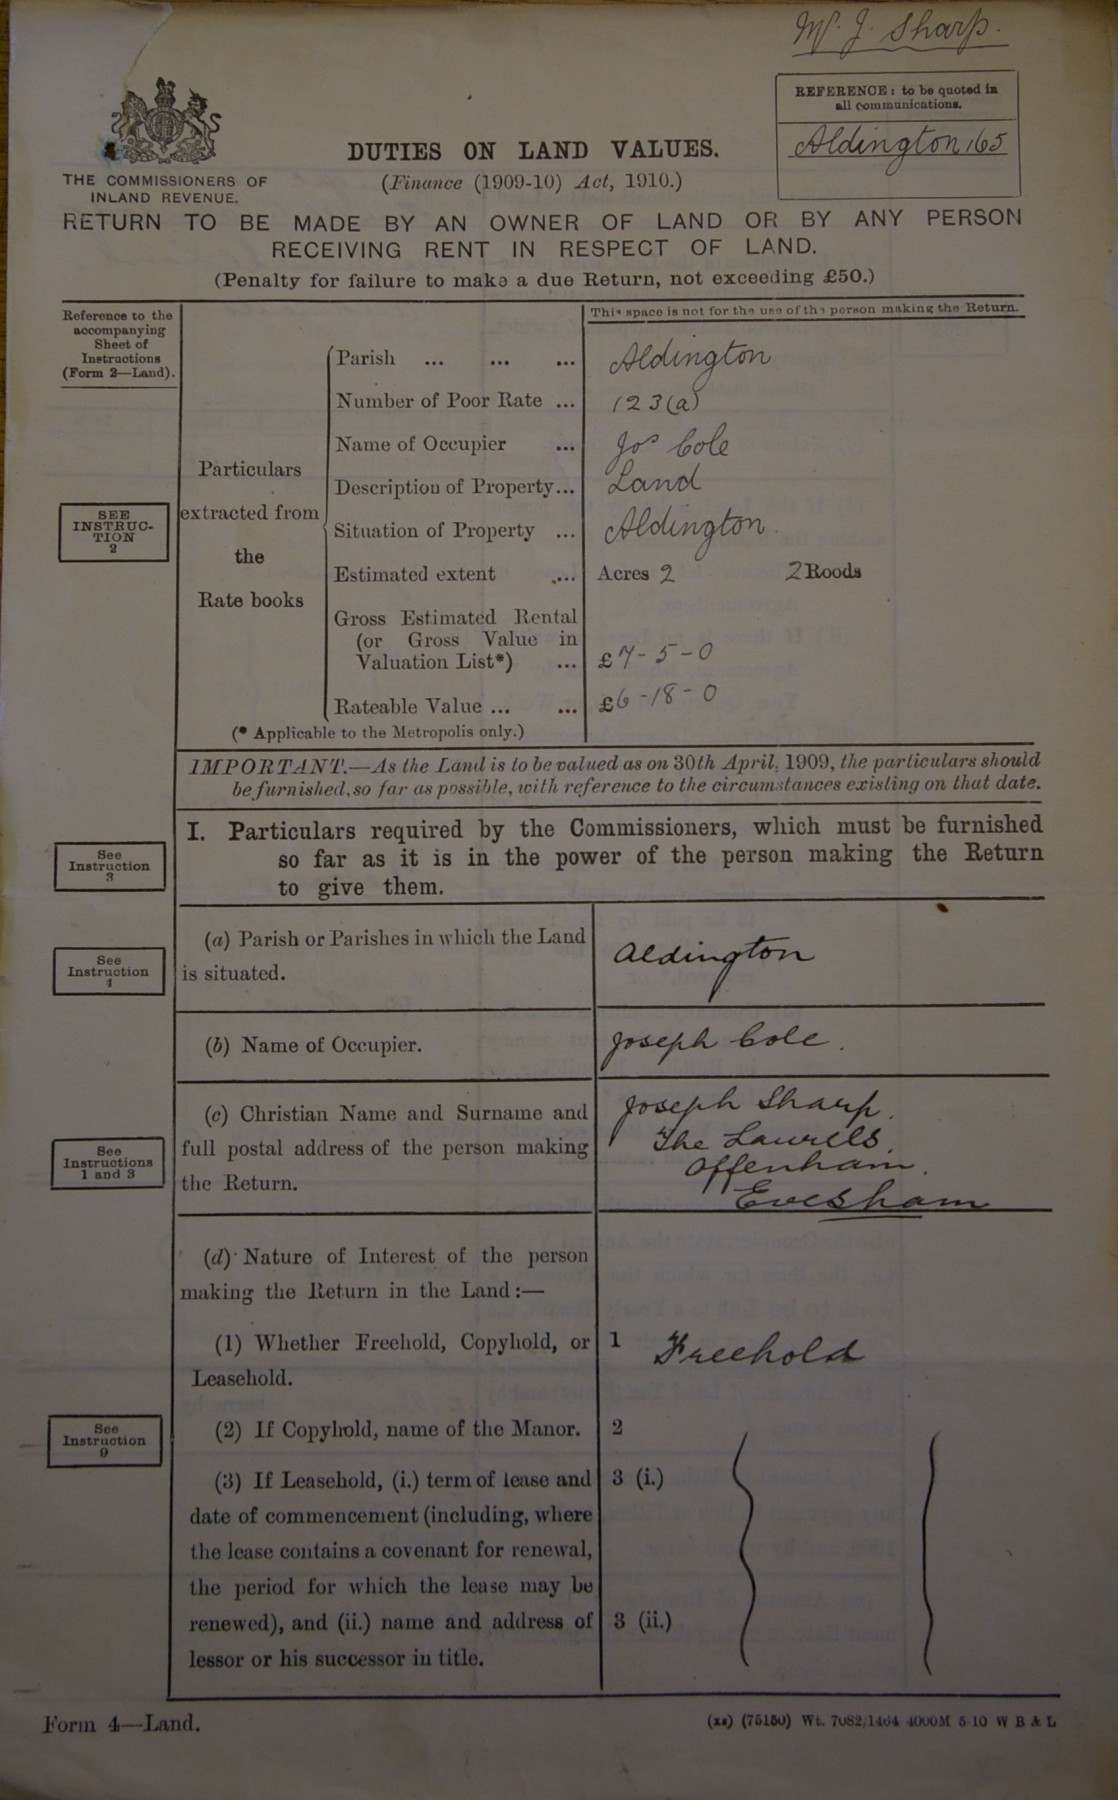 W. J. Sharp.
REFERENCE: to be quoted in
all communications.
Aldington 165
THE COMMISSIONERS OF
INLAND REVENUE.
DUTIES ON LAND VALUES.
(Finance (1909-10) Act, 1910.)
RETURN TO BE MADE BY AN OWNER OF LAND OR BY ANY PERSON
RECEIVING RENT IN RESPECT OF LAND.
(Penalty for failure to make a due Return, not exceeding £50.)
Reference to the
accompanying
Sheet of
Instructions
(Form 2—Land).
This space is not for the use of the person making the Return.
SEE
INSTRUC-
TION
2
Particulars
extracted from
the
Rate books
Parish ... ... ... Aldington
Number of Poor Rate ... 123(a)
Name of Occupier ... Jos Cole
Description of Property... Land
Situation of Property ... Aldington
Estimated extent ... Acres 2 2 Roods
Gross Estimated Rental
(or Gross Value in
Valuation List*) ... £7-5-0
Rateable Value ... ... £6-18-0
(* Applicable to the Metropolis only.)
IMPORTANT.—As the Land is to be valued as on 30th April, 1909, the particulars should
be furnished, so far as possible, with reference to the circumstances existing on that date.
See
Instruction
3
I. Particulars required by the Commissioners, which must be furnished
so far as it is in the power of the person making the Return
to give them.
See
Instruction
4
(a) Parish or Parishes in which the Land
is situated.
Aldington
(b) Name of Occupier.
Joseph Cole.
See
Instructions
1 and 3
(c) Christian Name and Surname and
full postal address of the person making
the Return.
Joseph Sharp.
The Laurels.
Offenham.
Evesham
(d) Nature of Interest of the person
making the Return in the Land:—
(1) Whether Freehold, Copyhold, or
Leasehold.
1 Freehold
See
Instruction
9
(2) If Copyhold, name of the Manor. 2
(3) If Leasehold, (i.) term of lease and 3 (i.)
date of commencement (including, where
the lease contains a covenant for renewal,
the period for which the lease may be
renewed), and (ii.) name and address of 3 (ii.)
lessor or his successor in title.
Form 4—Land.
(75150) Wt. 7082/1464 4000M 5-10 W B & L